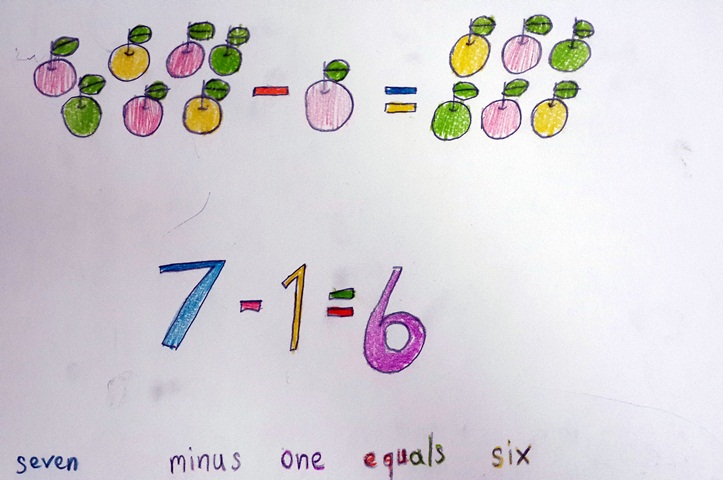 7 - 1 = 6
seven minus one equals six